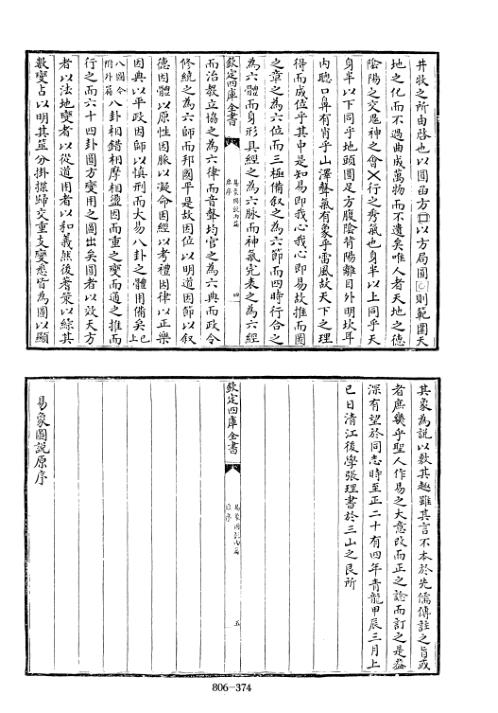 井牧之所由啓也以圓函方囗以方局圓則範圍天
地之化而不過曲成萬物而不遺矣唯人者天地之德
陰陽之交鬼神之會㐅行之秀氣也身半以上同乎天
身半以下同乎地頭圓足方腹隂背陽離目外明坎耳
内聰口鼻有肖乎山澤聲氣有象乎雷風故天下之理
得而成位乎其中是知易即我心我心即易故推而圖
之章之為六位而三極備叙之為六節而四時行合之
為六體而身形具經之為六脈而神氣完表之為六經
欽定四庫全書
易象圖說内篇
原序
四
而治教立協之為六律而音聲均官之為六典而政令
修統之為六師而邦國平是故因位以明道因節以叙
德因體以原性因脈以凝命因經以考禮因律以正樂
因典以平政因師以慎刑而大易八卦之體用備矣已上
八圖今附外篇八卦相錯相摩相盪因而重之變而通之推而
行之而六十四卦圓方變用之圖出矣圓者以效天方
者以法地變者以從道用者以和義然後蓍策以綜其
數變占以明其筮分掛揲歸交重支變悉皆為圖以顯
其象為說以敷其趣雖其言不本於先儒傳註之旨或
者庶幾乎聖人作易之大意改而正之諗而訂之是蓋
深有望於同志時至正二十有四年青龍甲辰三月上
已日清江後學張理書於三山之艮所
欽定四庫全書
易象圖說内篇
原序
五
易象圖說原序
806-374